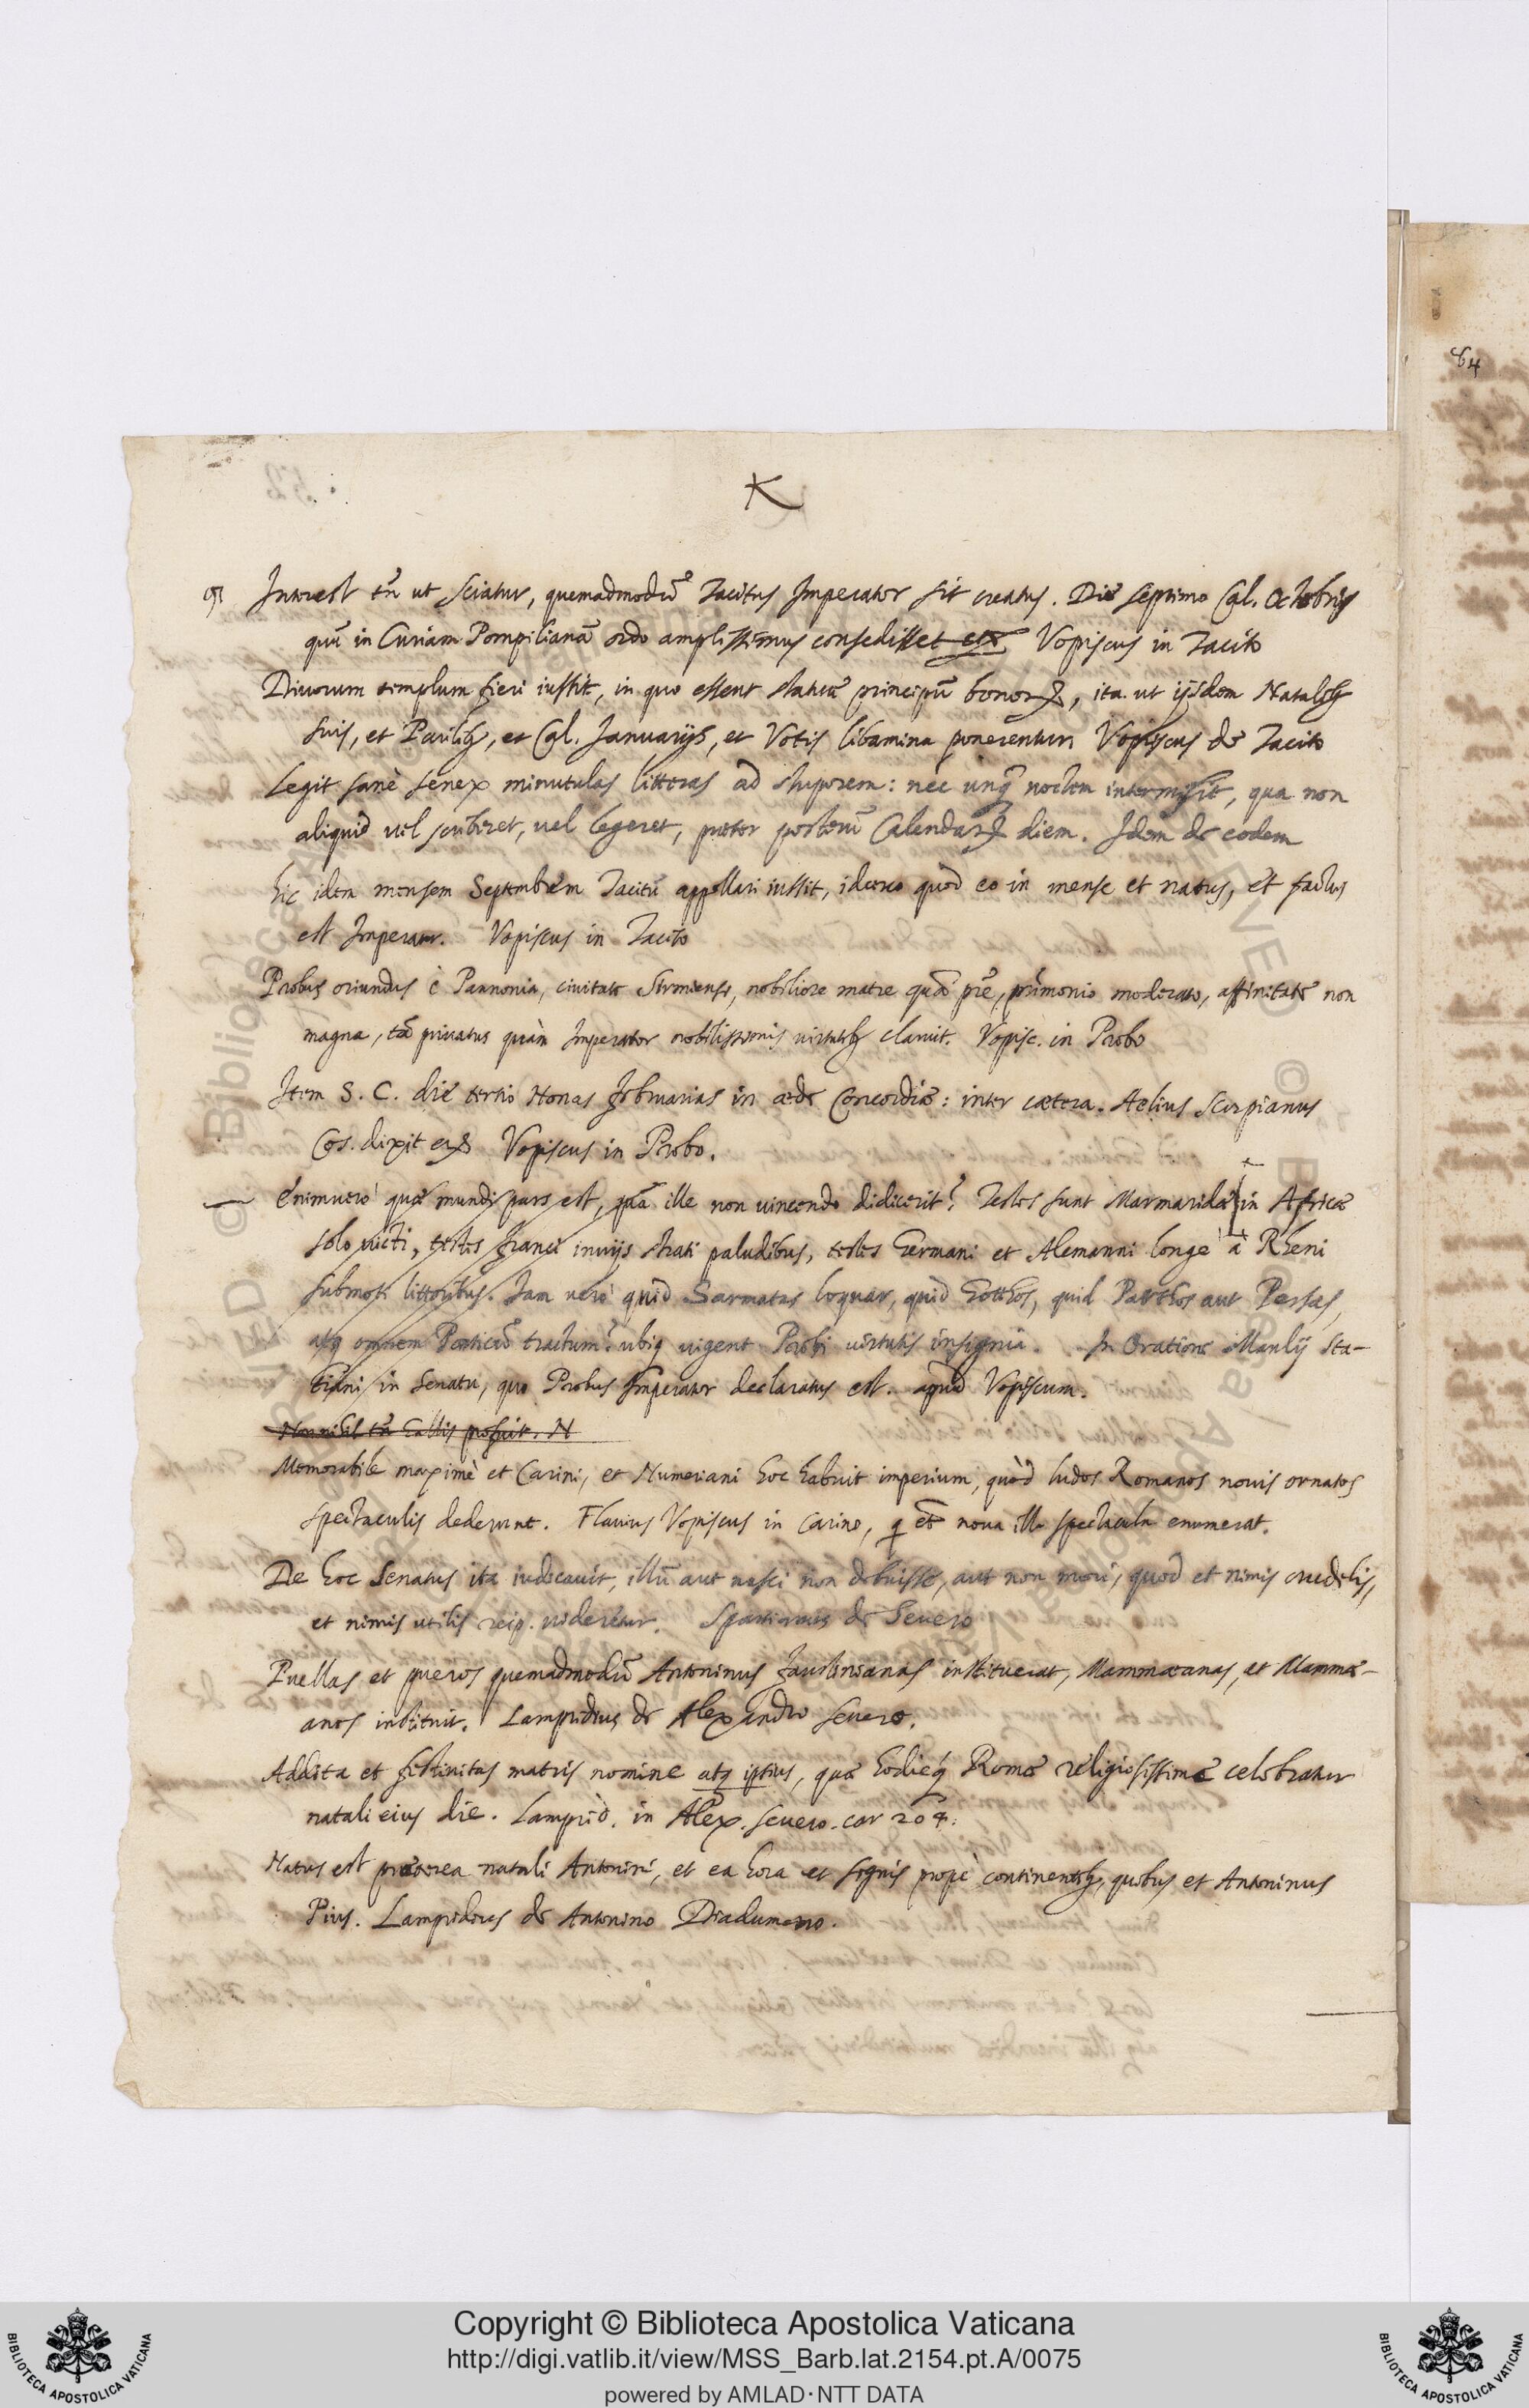 K
Interest tñ ut sciatur, quemadmodũ Tacitus Imperator sit creatus. Die septimo Cal. Octobris
quũ in Curiam Pompilianã ordo amplissimus consedisset etc. Vopiscus in Tacito
Divorum templum fieri iussit, in quo essent statuæ principũ bonorꝝ, ita ut ijsdem Natalibꝰ
suis, et Parilibꝰ, et Cal. Januarijs, et Votis libamina ponerentur. Vopiscus de Tacito
Legit sanè senex minutulas litteras ad stuporem: nec unq̃ noctem intermisit, qua non
aliquid vel scriberet, vel legeret, præter posterũ Calendarꝝ diem. Idem de eodem
hic idem mensem Septembrem Tacitũ appellari iussit, idcirco quòd eo in mense et natus, et factus
est Imperator. Vopiscus in Tacito
Probus oriundus è Pannonia, civitate Sirmiensi, nobiliore matre quã pr̃e, pr̃imonio moderato, affinitate non
magna, tã privatus quàm Imperator nobilissimis virtutibꝰ claruit. Vopisc. in Probo
Item S. C. die tertio Nonas Februarias in æde Concordiæ: inter cætera. Aelius Scorpianus
Cos. dixit etc. Vopiscus in Probo.
Enimuero quæ mundi pars est, quã ille non vincendo didicerit? Testes sunt Marmaridæ in Africæ
solo victi, testes Franci invijs strati paludibus, testes Germani et Alemanni longe à Rheni
submoti littoribus. Iam verò quid Sarmatas loquar, quid Gotthos, quid Parthos aut Persas,
atq; omnem Ponticũ tractum? ubiq; vigent Probi virtutis insignia. In Oratione Manlij Sta-
tiani in Senatu, quo Probus Imperator declaratus est. apud Vopiscum.
Nonnihil tñ Gallis profuit. N
Memorabile maximè et Carini, et Numeriani hoc habuit imperium, quòd ludos Romanos novis ornatos
spectaculis dederunt. Flavius Vopiscus in Carino, q et nova illa spectacula enumerat.
De hoc Senatus ita iudicavit, illũ aut nasci non debuisse, aut non mori, quod et nimis crudelis,
et nimis utilis reip. videretur. Spartianus de Severo
Puellas et pueros quemadmodũ Antoninus Faustinianas instituerat, Mammæanas, et Mammæ-
anos instituit. Lampridius de Alexandro Severo.
Addita et festivitas matris nomine atq; ipsius, quæ hodieq; Romæ religiosissimæ celebratur
natali eius die. Lamprid. in Alex. Severo. car 204.
Natus est præterea natali Antonini, et ea hora et signis propè continentibꝰ, quibus et Antoninus
Pius. Lampridius de Antonino Diadumeno.
64
Copyright © Biblioteca Apostolica Vaticana
http://digi.vatlib.it/view/MSS_Barb.lat.2154.pt.A/0075
powered by AMLAD·NTT DATA
BIBLIOTECA APOSTOLICA VATICANA
BIBLIOTECA APOSTOLICA VATICANA